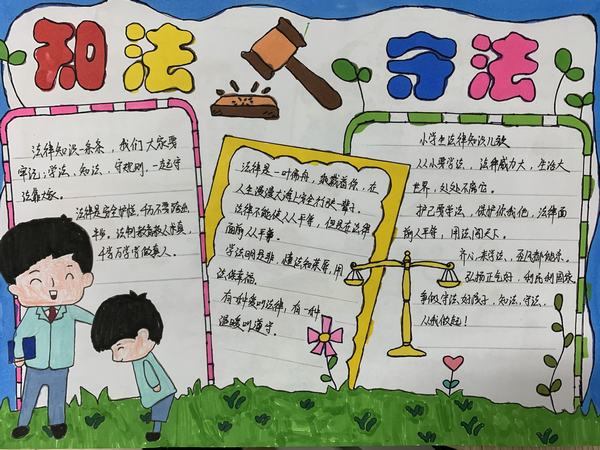 知法 守法
法律知识一条条，我们大家要
牢记；学法、知法、守规则，一起守
法靠大家。
法律是安全护栏，千万不要跨出
半步。法制教育教人求真，
千学万学学做真人。
法律是一叶偏舟，乘载着你，在
人生漫漫大海上安全行驶一辈子。
法律不能使人人平等，但是在法律
面前人人平等。
学法明是非，懂法知荣辱，用
法保幸福。
有一种爱叫法律，有一种
温暖叫遵守。
小学生法律知识儿歌
从小要学法，法律威力大，生活大
世界，处处不离它。
护己要学法，保护你我他，法律面
前人平等，用法闯天下。
齐心来学法，
弘扬正气好，利民利国家
争做守法好孩子，知法、守法、
从我做起！